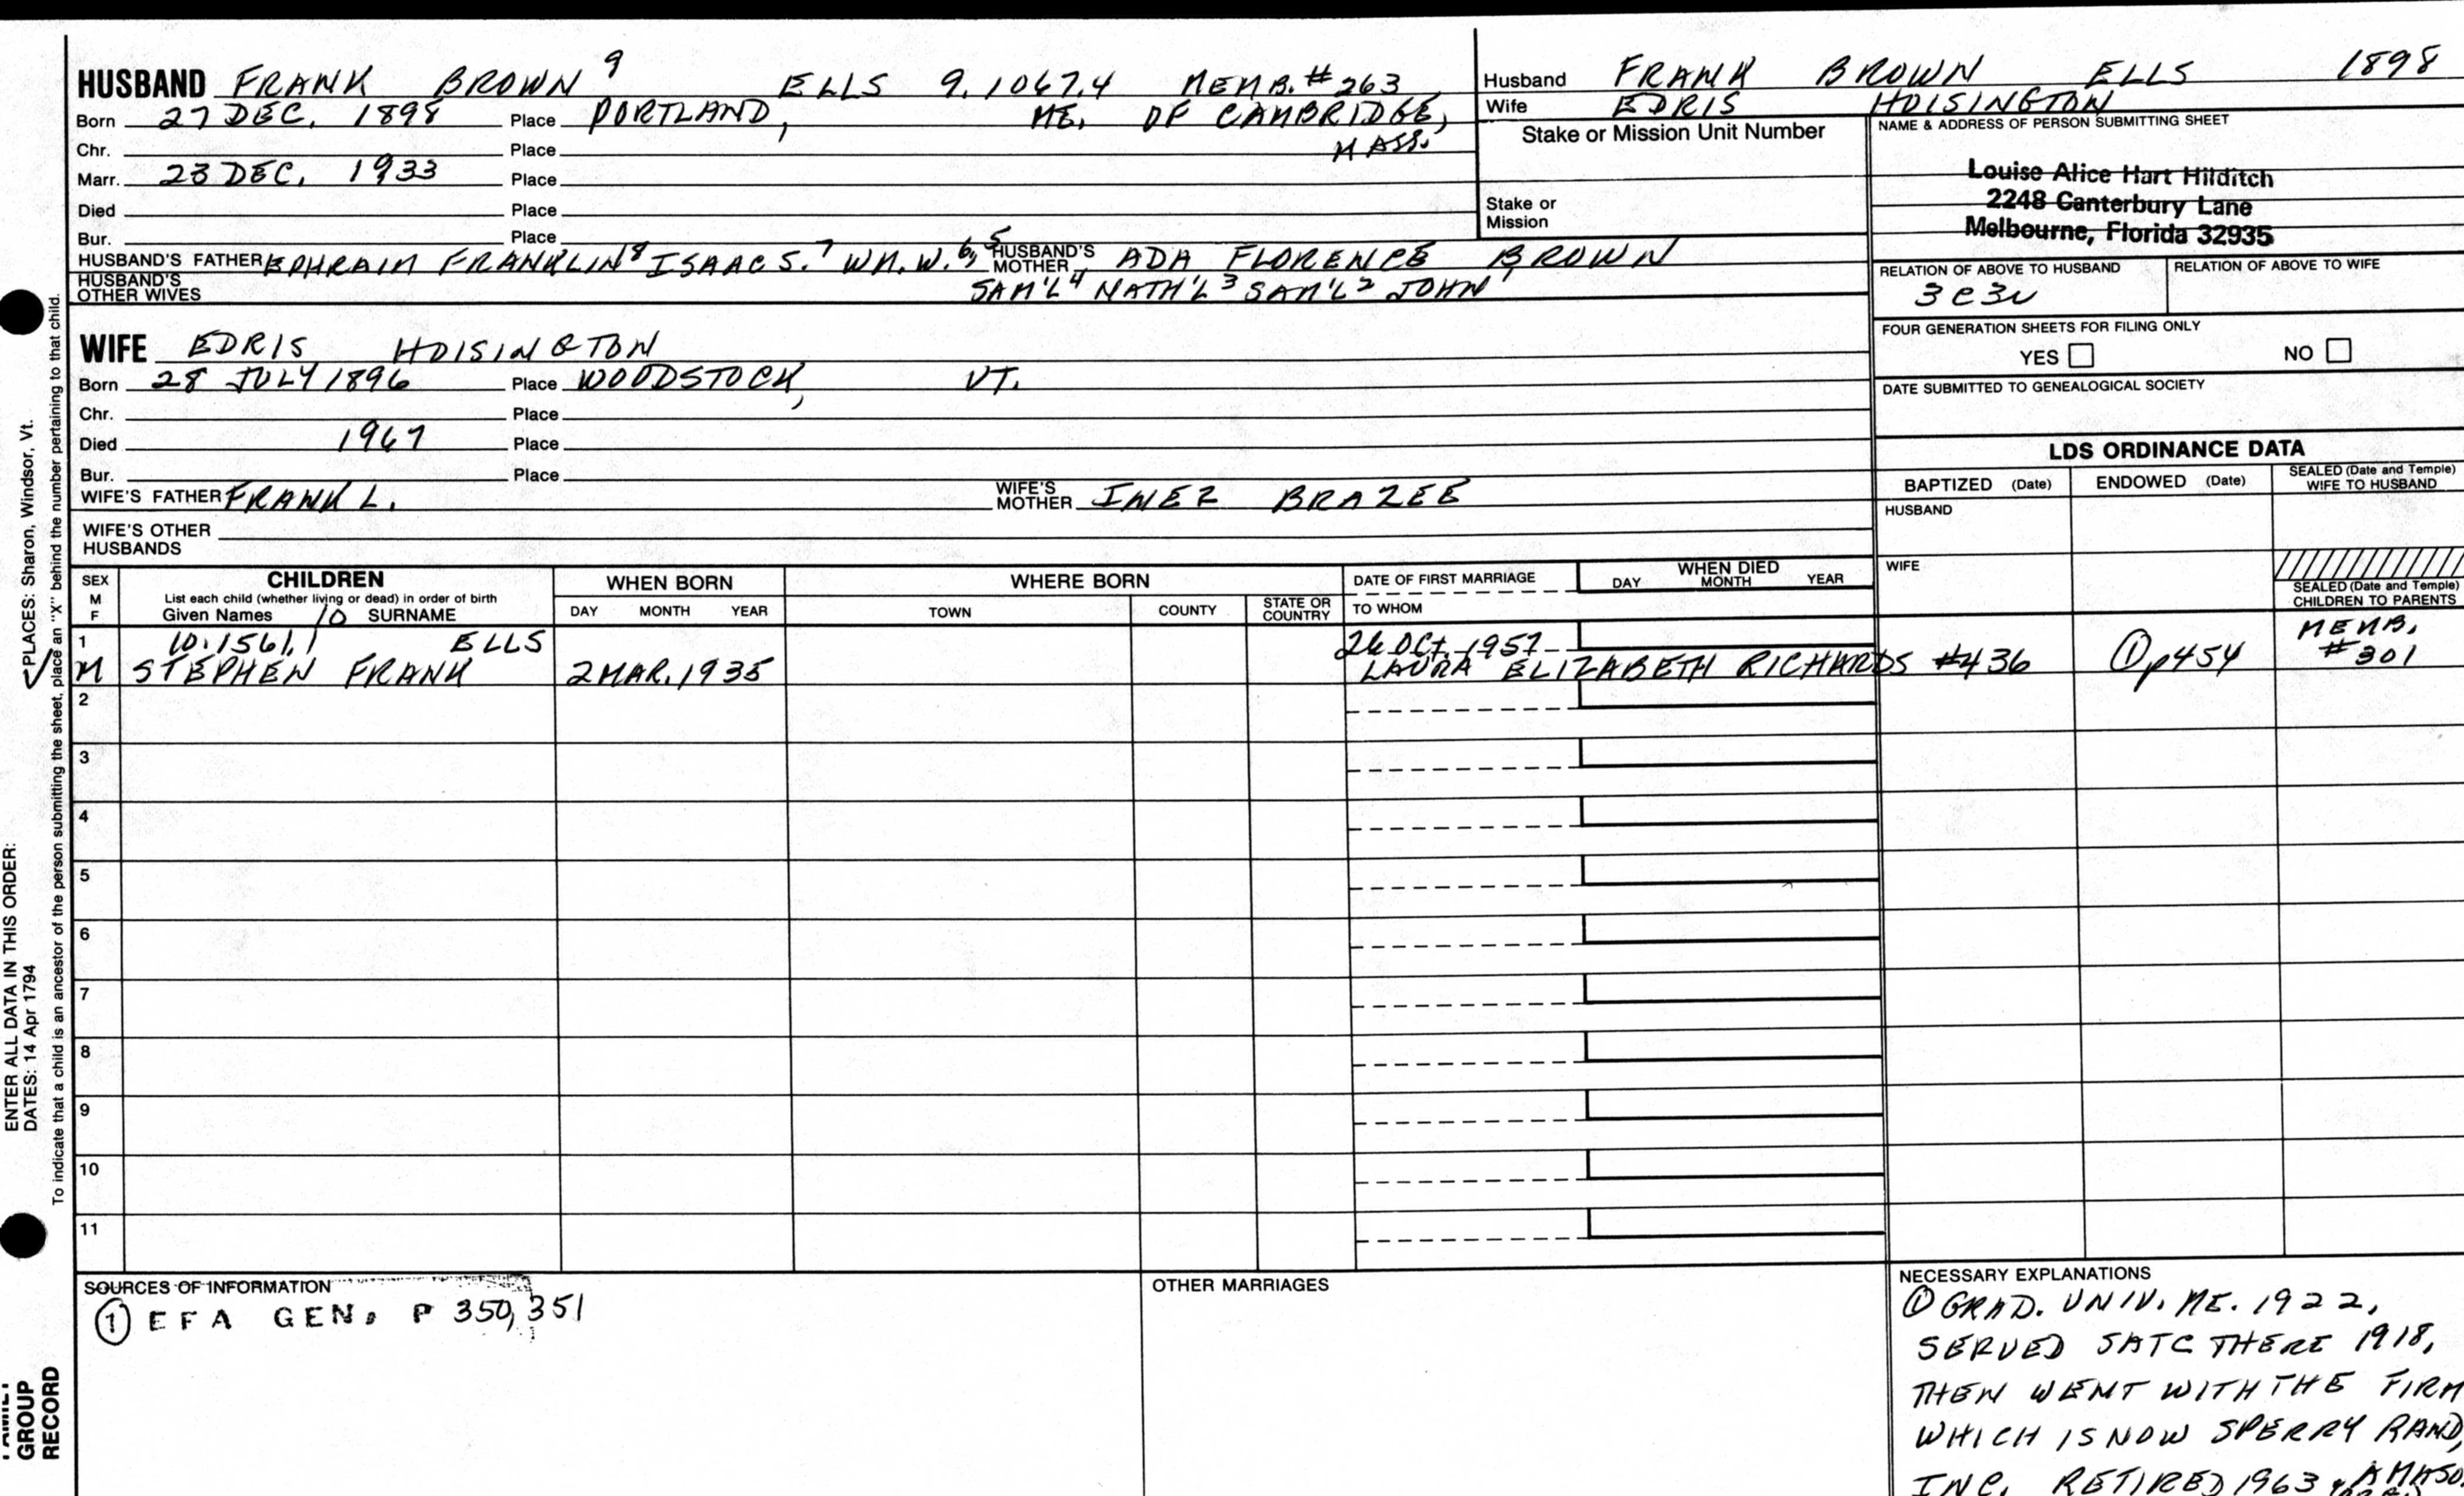 HUSBAND FRANK BROWN 9 ELLS 9.1067.4 MEMB.#263
Born 27 DEC. 1898 Place PORTLAND, ME. OF CAMBRIDGE,
Chr. Place MASS.
Marr. 23 DEC. 1933 Place
Died Place
Bur. Place
HUSBAND'S FATHER EPHRAIM FRANKLIN 8 ISAAC S. 7 WM. W. 6, 5 HUSBAND'S MOTHER ADA FLORENCE BROWN
HUSBAND'S OTHER WIVES SAM'L 4 NATH'L 3 SAM'L 2 JOHN 1
Husband FRANK BROWN ELLS 1898
Wife EDRIS HOISINGTON
Stake or Mission Unit Number
Stake or
Mission
NAME & ADDRESS OF PERSON SUBMITTING SHEET
Louise Alice Hart Hilditch
2248 Canterbury Lane
Melbourne, Florida 32935
RELATION OF ABOVE TO HUSBAND RELATION OF ABOVE TO WIFE
3C3R
FOUR GENERATION SHEETS FOR FILING ONLY
YES NO
DATE SUBMITTED TO GENEALOGICAL SOCIETY
WIFE EDRIS HOISINGTON
Born 28 JULY 1896 Place WOODSTOCK, VT.
Chr. Place
Died 1967 Place
Bur. Place
WIFE'S FATHER FRANK L. WIFE'S MOTHER INEZ BRAZEE
WIFE'S OTHER
HUSBANDS
LDS ORDINANCE DATA
BAPTIZED (Date) ENDOWED (Date) SEALED (Date and Temple) WIFE TO HUSBAND
HUSBAND
WIFE
SEALED (Date and Temple)
CHILDREN TO PARENTS
SEX M F
CHILDREN
List each child (whether living or dead) in order of birth
Given Names 10 SURNAME
WHEN BORN
DAY MONTH YEAR
WHERE BORN
TOWN COUNTY STATE OR COUNTRY
DATE OF FIRST MARRIAGE
TO WHOM
WHEN DIED
DAY MONTH YEAR
1 10.1561.1 ELLS 26 OCT. 1957 MEMB.
M STEPHEN FRANK 2 MAR. 1935 LAURA ELIZABETH RICHARDS #436 ① p454 #301
2
3
4
5
6
7
8
9
10
11
SOURCES OF INFORMATION
① EFA GEN. P 350, 351
OTHER MARRIAGES
NECESSARY EXPLANATIONS
① GRAD. UNIV. ME. 1922,
SERVED SATC THERE 1918,
THEN WENT WITH THE FIRM
WHICH IS NOW SPERRY RAND,
INC. RETIRED 1963
PLACES: Sharon, Windsor, Vt.
ENTER ALL DATA IN THIS ORDER:
DATES: 14 Apr 1794
To indicate that a child is an ancestor of the person submitting the sheet, place an "X" behind the number pertaining to that child.
FAMILY
GROUP
RECORD